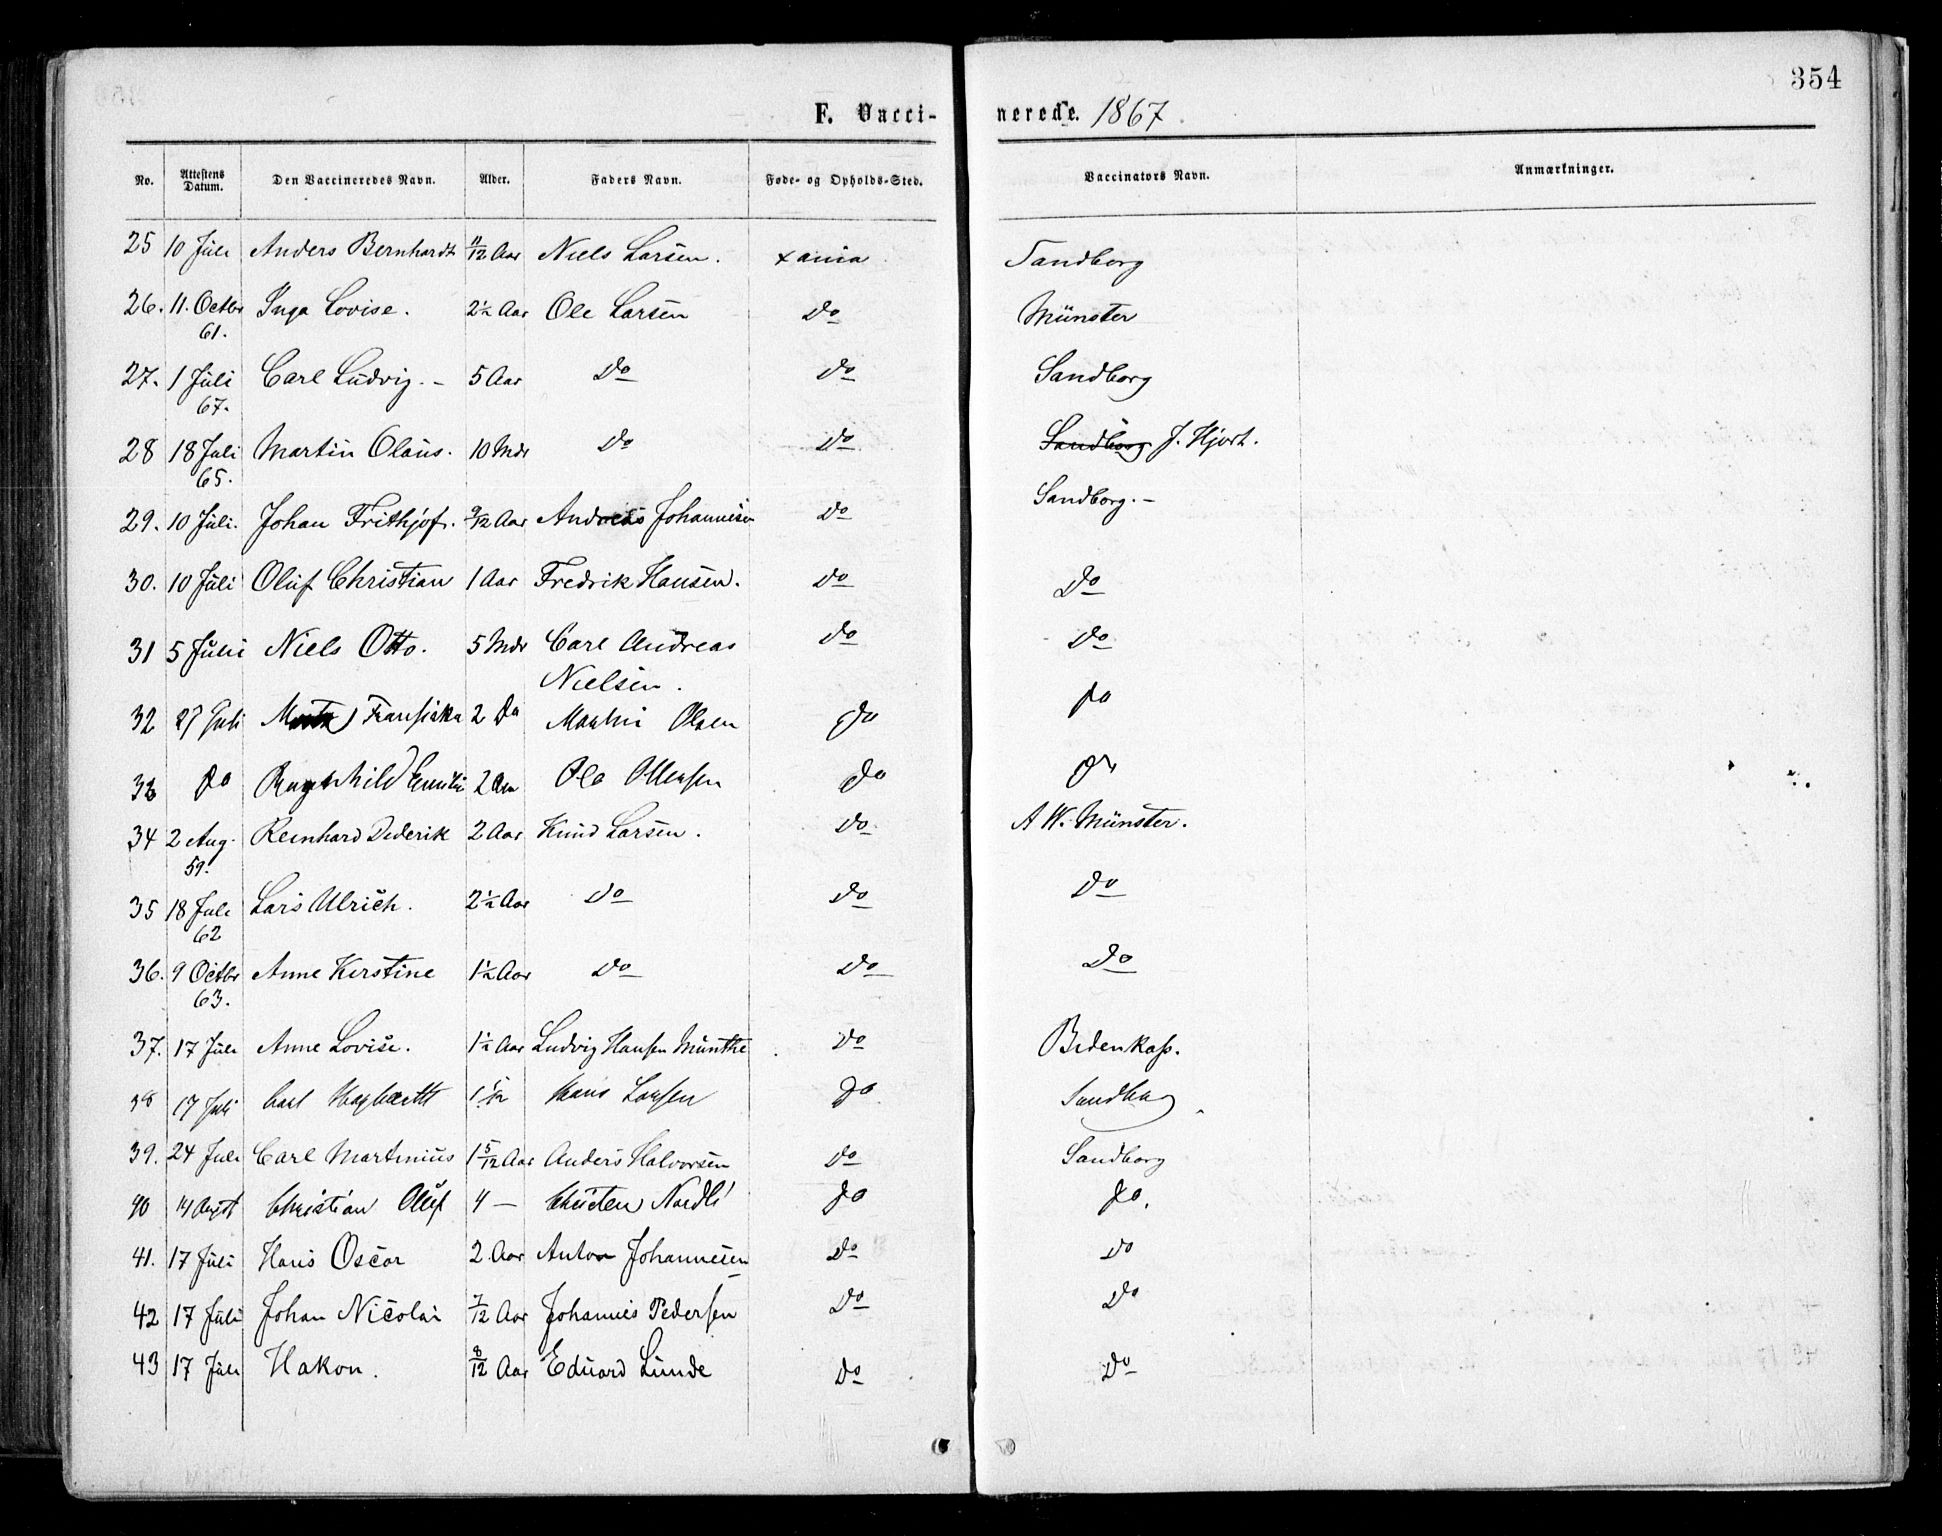 354
F. Vaccinerede. 1867.
No. Attestens Datum. Den Vaccineredes Navn. Alder. Faders Navn. Føde- og Opholds-Sted. Vaccinators Navn. Anmærkninger.
25 10 Juli Anders Bernhardt 11/12 Aar Niels Larsen. Xania Sandborg
26. 11. Octbr 61. Inga Lovise. 2½ Aar Ole Larsen Do Münster
27. 1 Juli 67. Carl Ludvig. – 5 Aar Do Do Sandborg
28 18 Juli 65. Martin Olaus. 10 Mdr Do Do Sandborg J. Hjort.
29. 10 Juli. Johan Frithjof. 9/12 Aar Andreas Johannesen Do Sandborg. –
30. 10 Juli Oluf Christian 1 Aar Fredrik Hansen. Do Do
31 5 Juli Niels Otto. 5 Mdr Carl Andreas Do Do
Nielsen.
32 27 Juli Fransiska 2 Do Martin Olsen Do Do
33 Do Ragnhild Emilie 2 Aar Ole Do Do
34 2 Aug. 59. Reinhard Dederik 2 Aar Knud Larsen. Do A W. Münster.
35 18 Juli 62 Lars Ulrich. 2½ Aar Do Do Do
36. 9 Octbr 63. Anne Kirstine 1½ Aar Do Do Do
37. 17 Juli Anne Lovise. 1½ Aar Ludvig Hansen Munthe Do Bidenkap.
38 17 Juli Carl Hagbarth 1 1/12 Hans Larsen Do Sandborg
39. 24 Juli Carl Martinius 1 5/12 Aar Anders Halvorsen Do Sandborg
40 14 Augst Christian Oluf 4 – Christen Nordli Do Do.
41. 17 Juli Hans Oscar 2 Aar Anton Johannesen Do Do
42 17 Juli Johan Nicolai 7/12 Aar Johannes Pedersen Do Do
43 17 Juli Hakon. 8/12 Aar Eduard Lunde Do Do